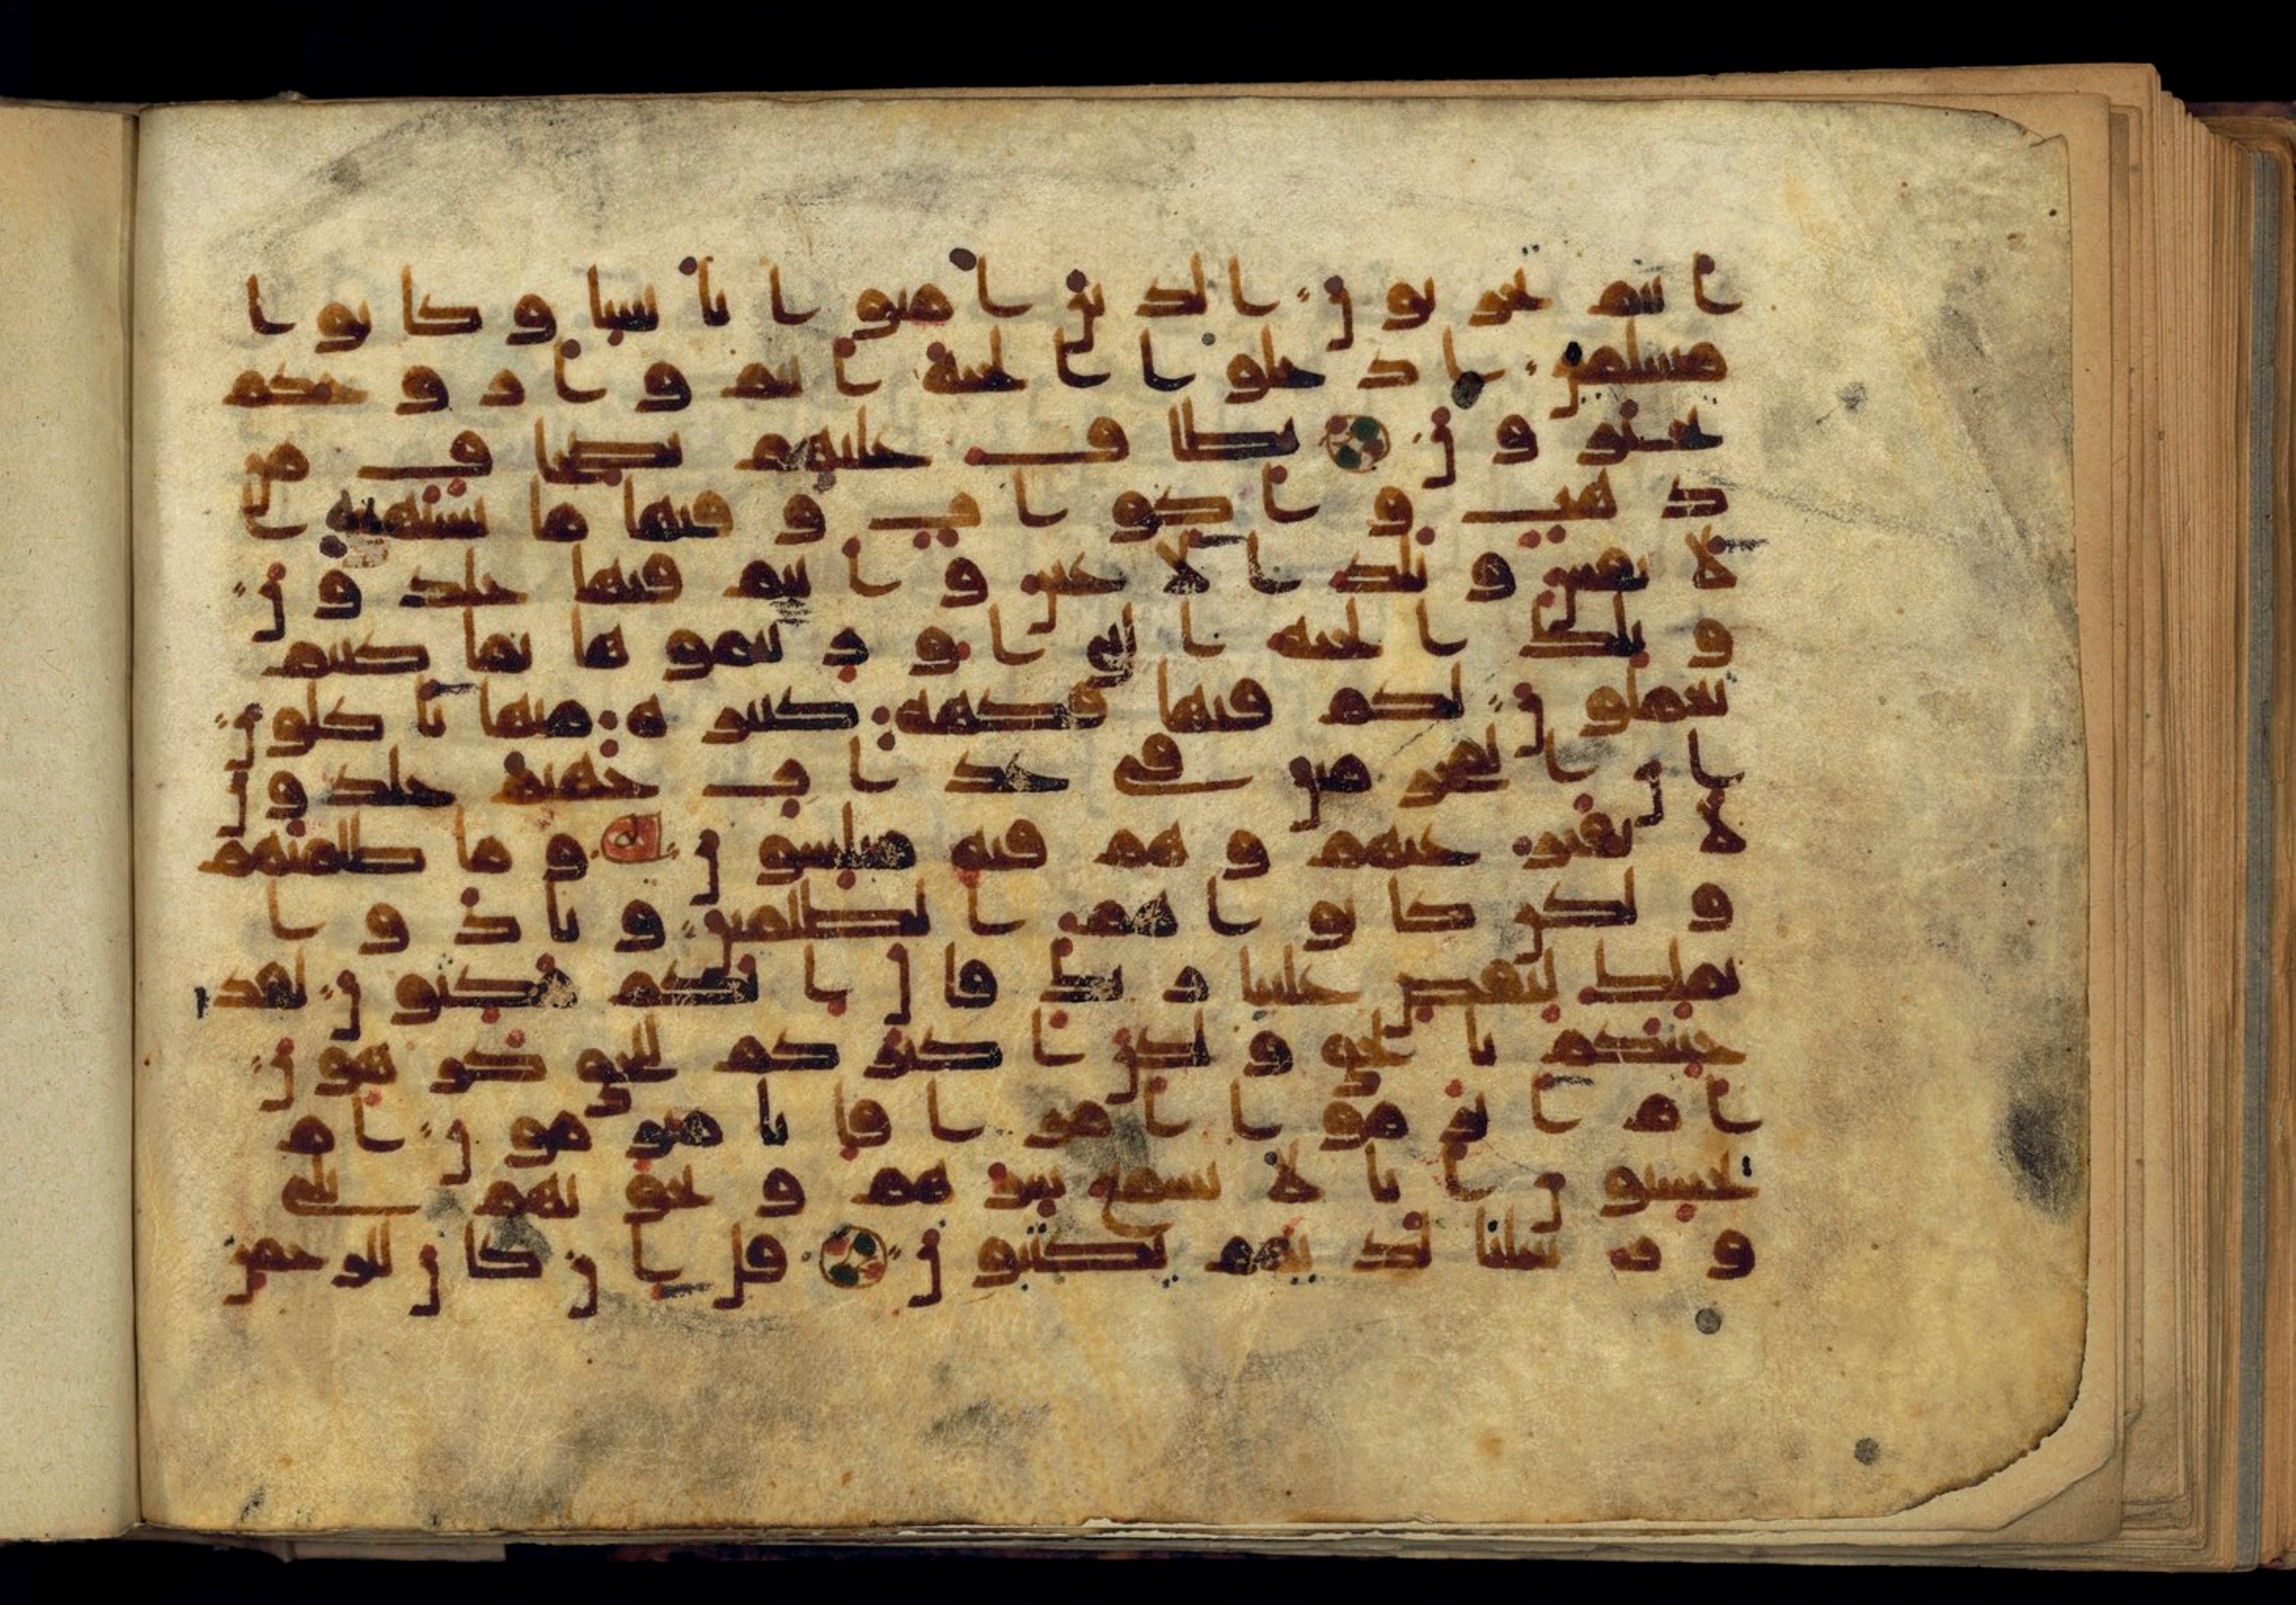 انتم تحزنون الذين امنوا بايتنا وكانوا
مسلمين ادخلوا الجنة انتم وازوجكم
تحبرون يطاف عليهم بصحاف من
ذهب واكواب وفيها ما تشتهيه ا
لانفس وتلذ الاعين وانتم فيها خلدون
وتلك الجنة التي اورثتموها بما كنتم
تعملون لكم فيها فكهة كثيرة منها تاكلون
ان المجرمين في عذاب جهنم خلدون
لا يفتر عنهم وهم فيه مبلسون وما ظلمنهم
ولكن كانوا هم الظلمين ونادوا
يملك ليقض علينا ربك قال انكم مكثون لقد
جئنكم بالحق ولكن اكثركم للحق كرهون
ام ابرموا امرا فانا مبرمون ام
يحسبون انا لا نسمع سرهم ونجويهم بلى
ورسلنا لديهم يكتبون قل ان كان للرحمن